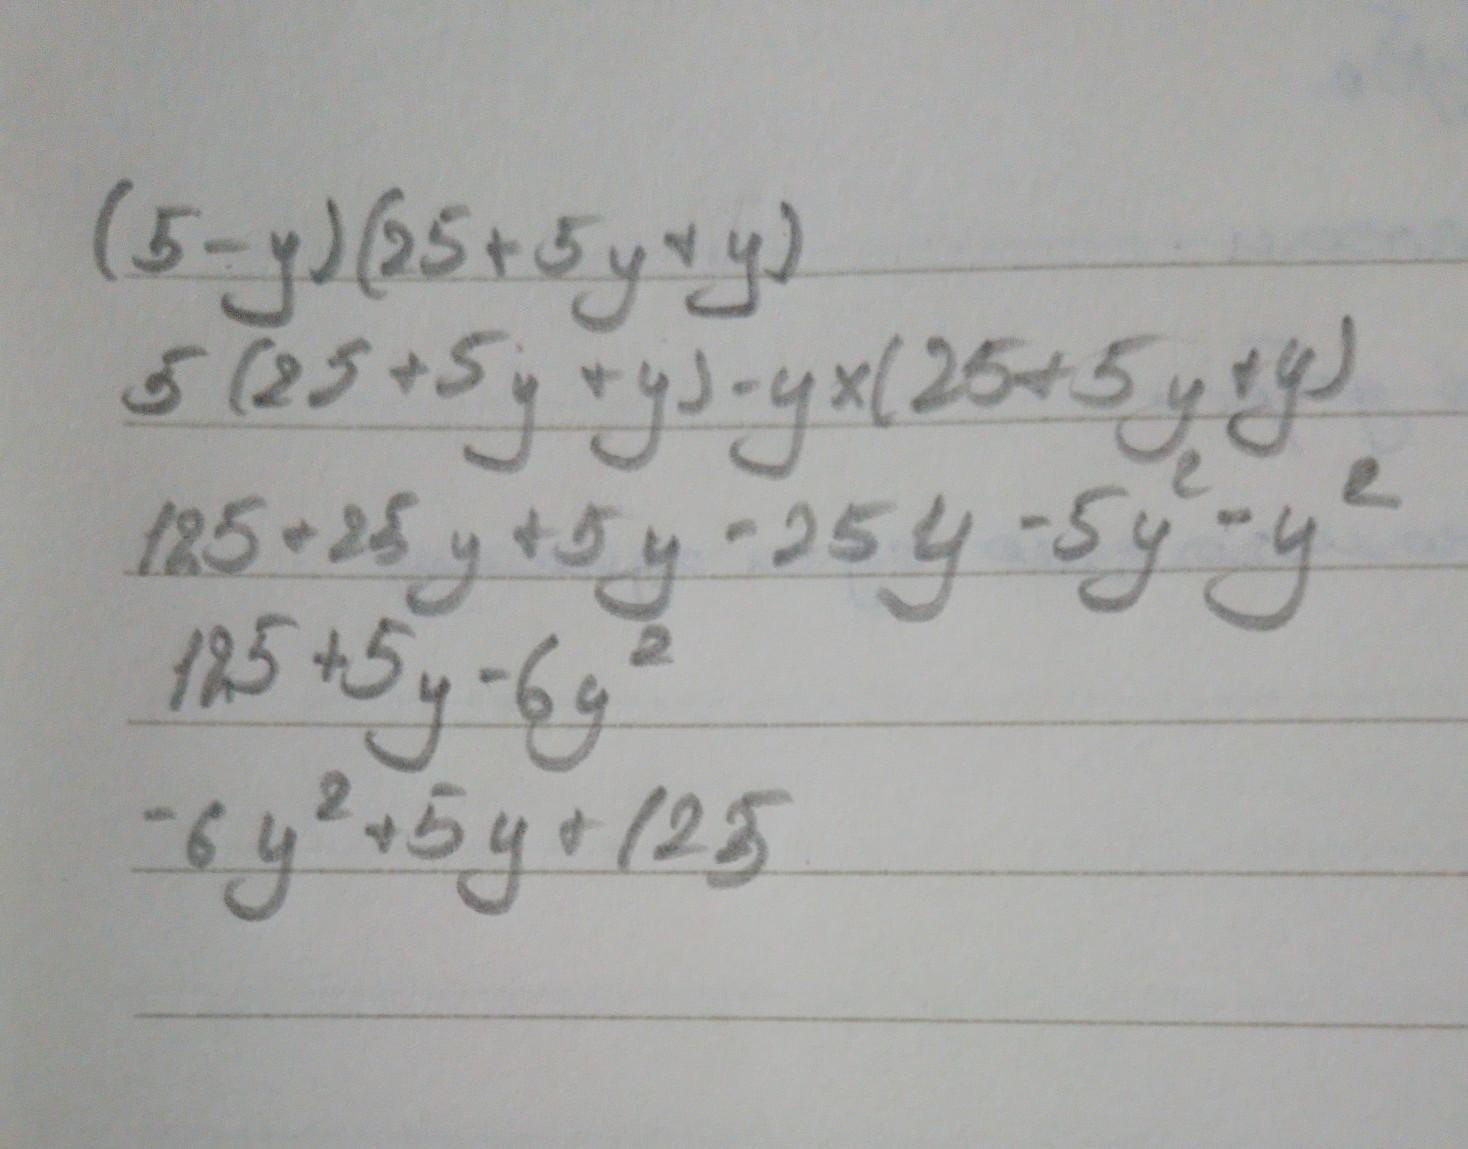 (5-y)(25+5y+y)
5(25+5y+y)-y×(25+5y+y)
125+25y+5y-25y-5y²-y²
125+5y-6y²
-6y²+5y+125